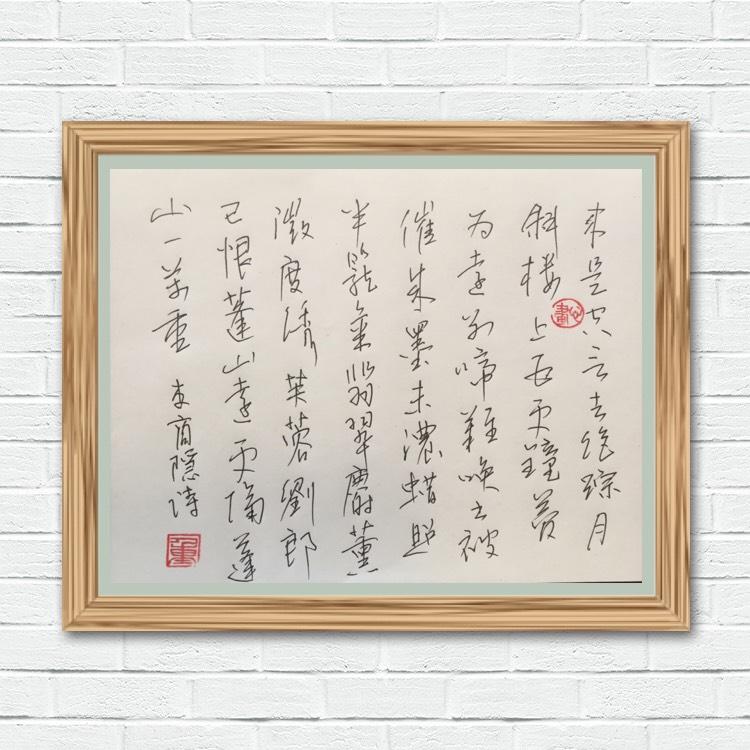 来是空言去绝踪月
斜楼上五更鐘夢
为遠别啼難唤书被
催成墨未濃蜡照
半籠金翡翠麝薰
微度绣芙蓉劉郎
已恨蓬山遠更隔蓬
山一万重 李商隱诗